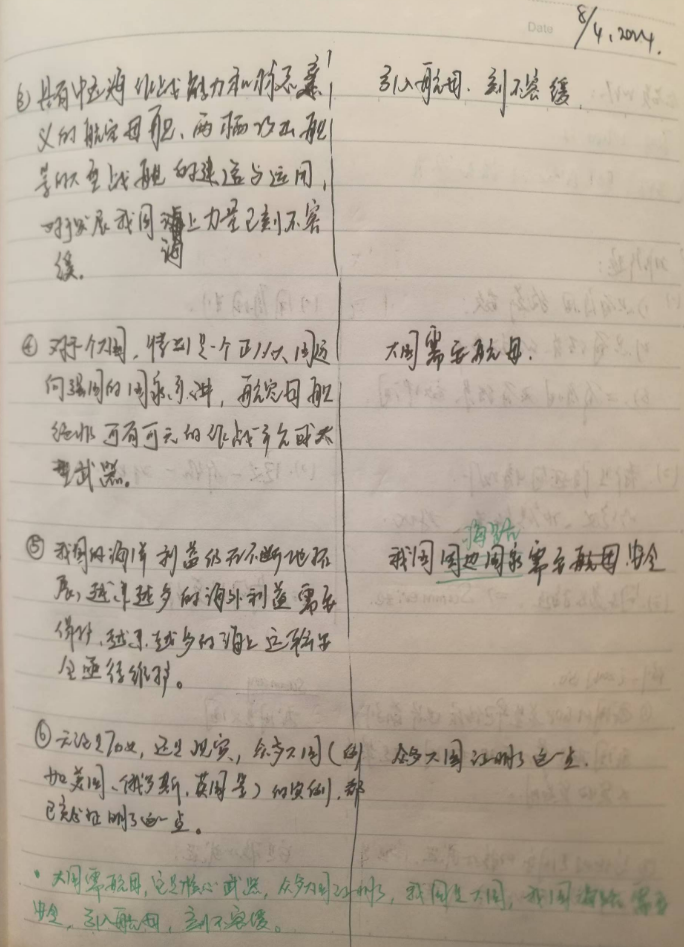 Date 8/4, 2024.
③ 具有中远海作战能力和特殊意
义的航空母舰、两栖攻击舰
等的大型战舰的建造与运用,
对于发展我国海上力量已刻不容
缓。
引入航母,刻不容缓,
④ 对于个大国,特别是一个正从大国迈
向强国的国家来讲,航空母舰
绝非可有可无的作战平台或大
型武器。
大国需要航母.
⑤ 我国的海洋利益仍在不断地拓
展,越来越多的海外利益需要
保护,越来越多的海上运输安
全亟待维护。
我国周边国家需要航母.安全
⑥ 无论是历史,还是现实,众多大国(例
如美国、俄罗斯,英国等)的实例,都
已充分证明了这一点。
众多大国证明了这一点.
· 大国需航母,它是核心武器,众多大国证明了,我国是大国,我国海路需要
安全,引入航母,刻不容缓。